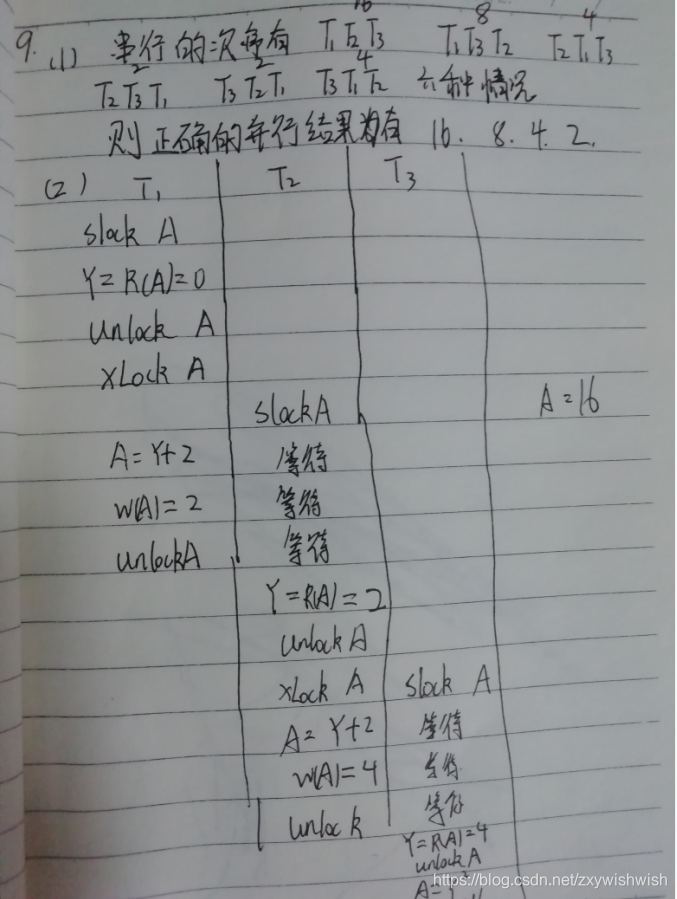 16 8 4
9. (1) 串行的次序有 T₁T₂T₃ T₁T₃T₂ T₂T₁T₃
2 2 4
T₂T₃T₁ T₃T₂T₁ T₃T₁T₂ 六种情况
则正确的并行结果为有 16. 8. 4. 2.
(2) T₁ T₂ T₃
slock A
Y=R(A)=0
unlock A
xLock A
slockA A=16
A=Y+2 等待
W(A)=2 等待
unlockA 等待
Y=R(A)=2
unlock A
xLock A slock A
A=Y+2 等待
W(A)=4 等待
unlock 等待
Y=R(A)=4
unlock A
https://blog.csdn.net/zxywishwish